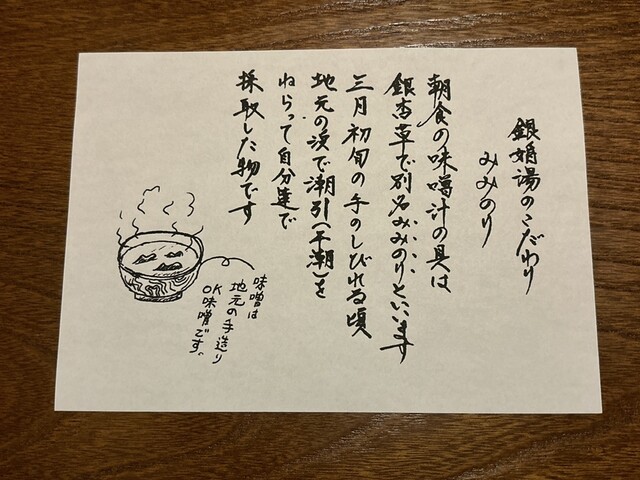 銀婚湯のこだわり
みみのり
朝食の味噌汁の具は
銀杏草で別名みみのりといいます
三月初旬の手のしびれる頃
地元の浜で潮引(干潮)を
ねらって自分達で
採取した物です
味噌は
地元の手造り
OK味噌です。